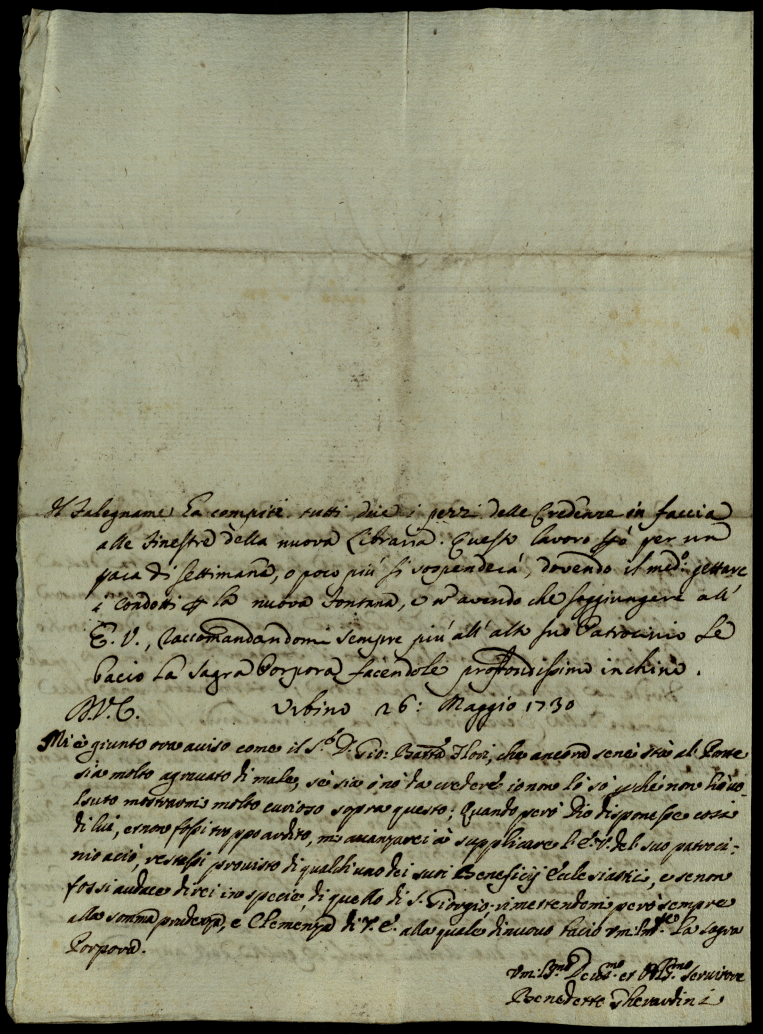 Il Falegname ha compiti tutti due i pezzi delle Credenze in faccia
alle finestre della nuova Libraria. Questo lavoro però per una
paca di settimana, o poco più si sospenderà, dovendo il med.º gettare
i Condotti per la nuova Fontana, e nō avendo che soggiungere all'
E. V., raccomandandomi sempre più all'alto suo Patrocinio Le
bacio la Sagra Porpora facendole profondissimo inchino.
Urbino 26: Maggio 1730
Mi è giunto ora aviso come il S.r D. Gio: Batt.a Flori, che ancora sene stà al Ponte
sia molto agravato di male, se sia ò nò da credere io non lo sò perche non hò vo-
lsuto mostrarmi molto curioso sopra questo; Quando però Dio disponesse cosa
di lui, et non fossi troppo ardito, m'avanzarei à supplicare l'E. V. del suo patroci-
nio acciò, restassi provisto di qualch'uno dei suoi Beneficij Ecclesiastici, e se non
fossi audace direi in specie di quello di S. Giorgio; rimettendomi però sempre
alla somma prudenza, e Clemenza di V. E. alla quale di nuovo bacio um.e la Sagra
Porpora.
Um.mo Dev.mo et Obl.mo Servitore
Benedetto Gherardini